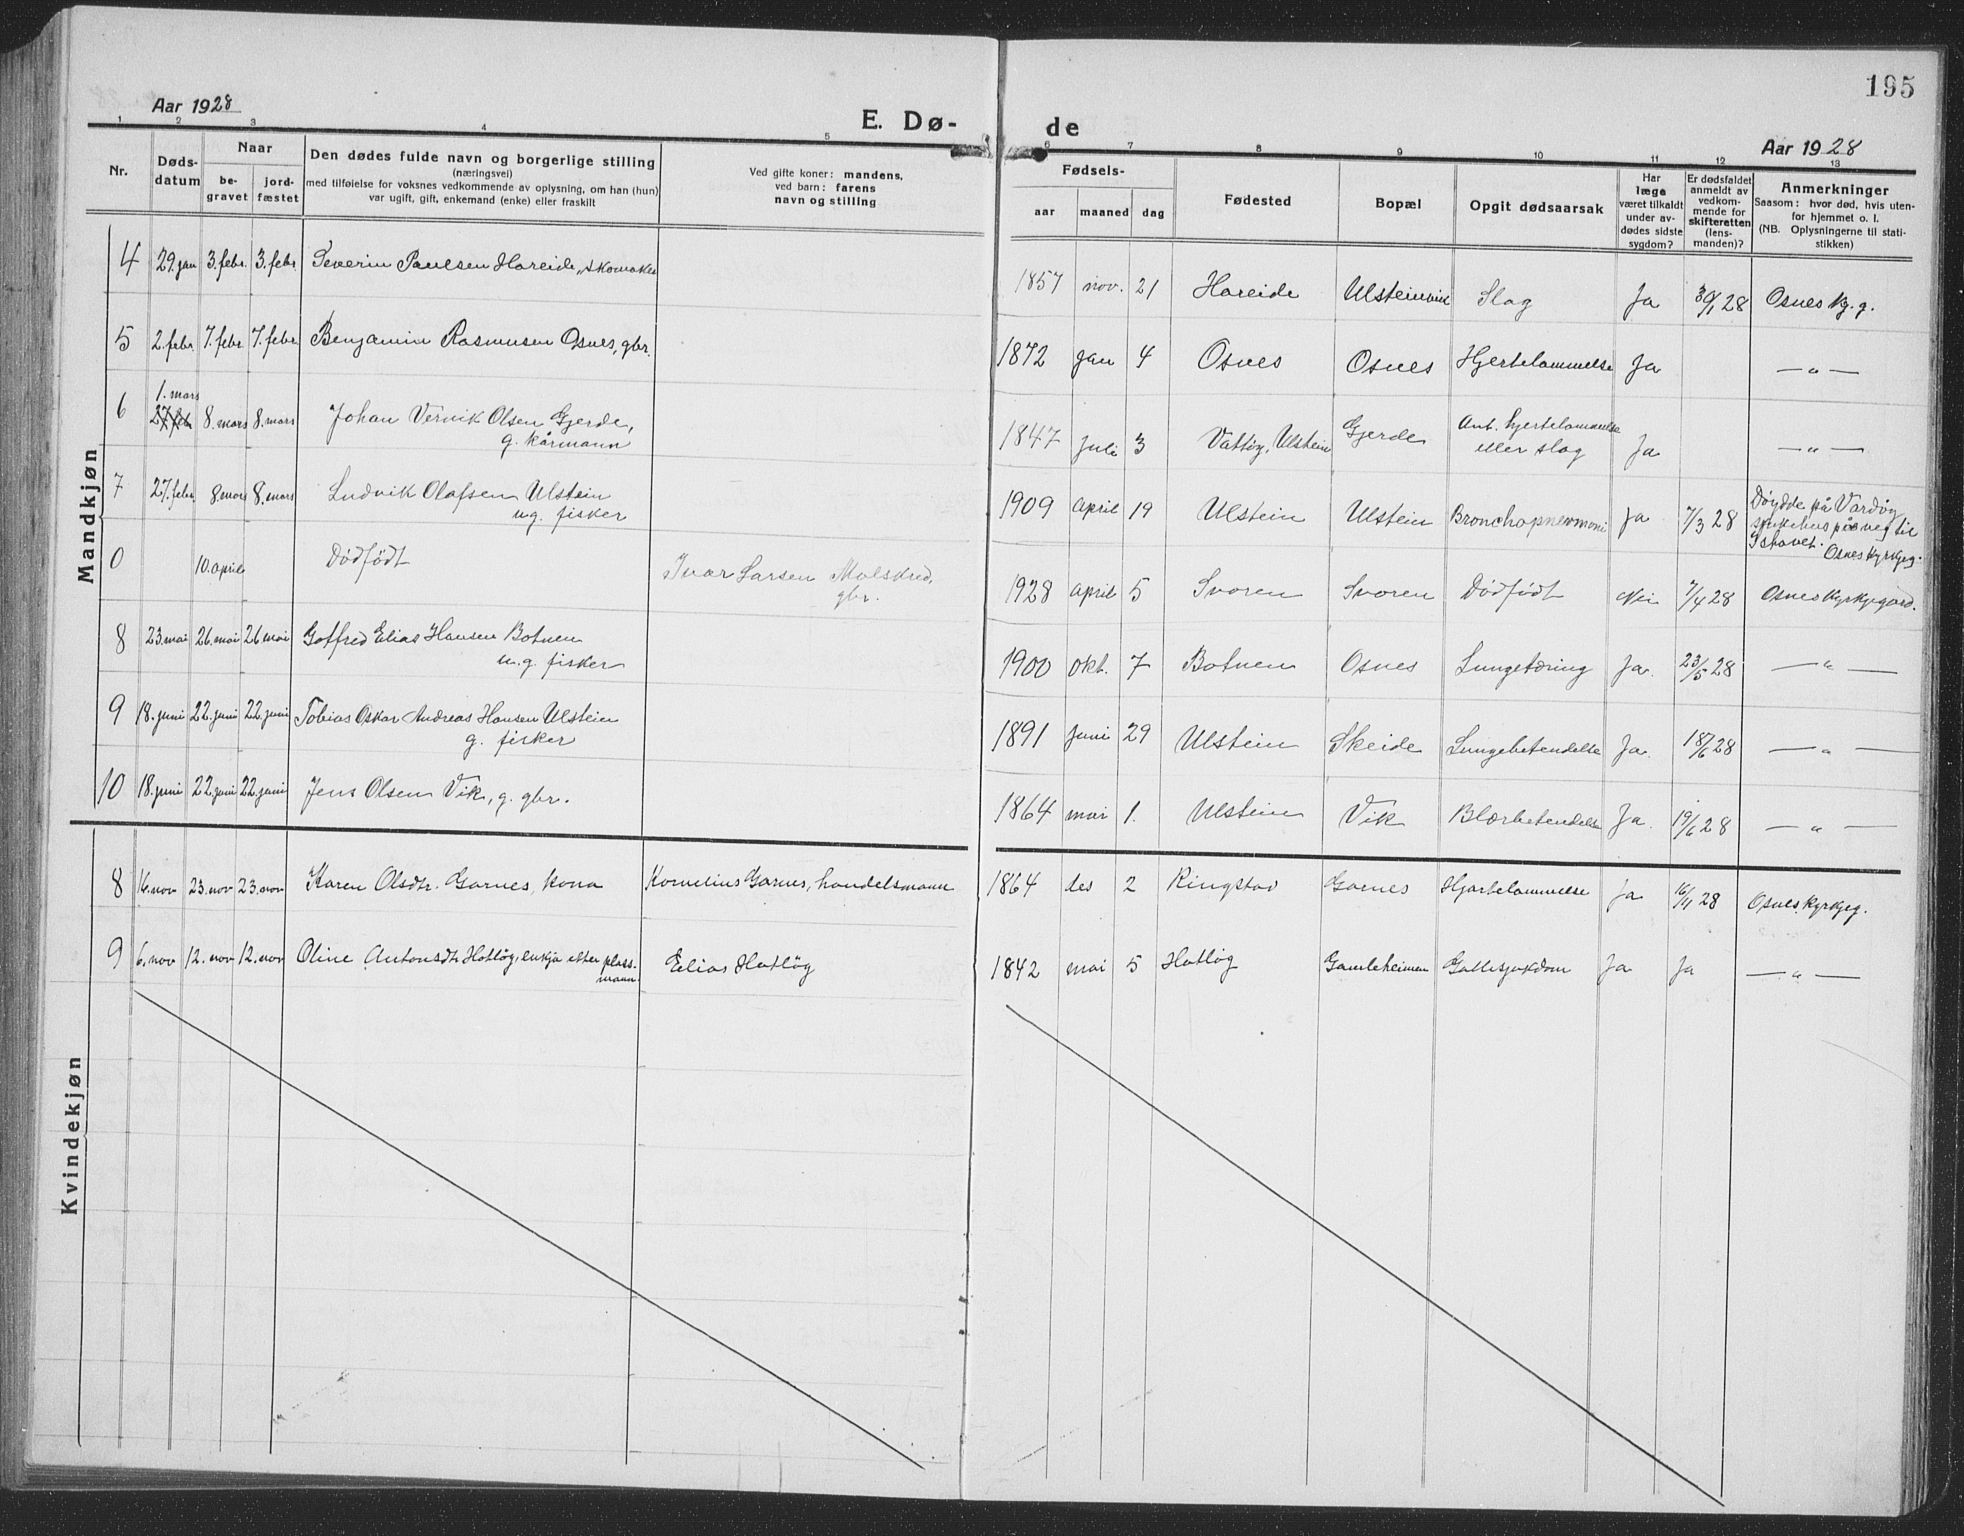 195
Aar 1928
E. Dø-
de
Aar 1928
1 2 3 4 5 6 7 8 9 10 11 12 13
Nr.
Døds-
datum
Naar
be-
gravet
jord-
fæstet
Den dødes fulde navn og borgerlige stilling
(næringsvei)
med tilføielse for voksnes vedkommende av oplysning, om han (hun)
var ugift, gift, enkemand (enke) eller fraskilt
Ved gifte koner: mandens,
ved barn: farens
navn og stilling
Fødsels-
aar maaned dag
Fødested
Bopæl
Opgit dødsaarsak
Har
læge
været tilkaldt
under av-
dødes sidste
sygdom?
Er dødsfaldet
anmeldt av
vedkom-
mende for
skifteretten
(lens-
manden)?
Anmerkninger
Saasom: hvor død, hvis uten-
for hjemmet o. l.
(NB. Oplysningerne til stati-
stikken)
Mandkjøn
4 29. jan 3. febr. 3. febr. Severin Paulsen Hareide, skomaker 1857 nov. 21 Hareide Ulsteinvik Slag Ja 30/1 28 Osnes kg. g.
5 2. febr. 7. febr. 7. febr. Benjamin Rasmussen Osnes, gbr. 1872 jan 4 Osnes Osnes Hjertelammelse Ja — " —
1. mars
6 27. feb 8. mars 8. mars Johan Vervik Olsen Gjerde,
g. kårmann
1847 juli 3 Vattøy, Ulstein Gjerde Ant. hjertelammelse
eller slag
Ja — " —
7 27. febr. 8. mars 8. mars Ludvik Olafsen Ulstein
ug. fisker
1909 april 19 Ulstein Ulstein Bronchopnevmoni Ja 7/3 28 Døydde på Vardøy
sjukehus på veg til
Ishavet. Osnes kyrkjeg.
0 10. april Dødfødt Ivar Larsen Molskred,
gbr.
1928 april 5 Svoren Svoren Dødfødt Nei 7/4 28 Osnes kyrkjegard.
8 23. mai 26. mai 26. mai Gotfred Elias Hansen Botnen
u. g. fisker
1900 okt. 7 Botnen Osnes Lungetæring Ja. 23/5 28 — " —
9 18. juni 22. juni 22. juni Tobias Oskar Andreas Hansen Ulstein
g. fisker
1891 juni 29 Ulstein Skeide Lungebetendelse Ja. 18/6 28 — " —
10 18. juni 22. juni 22. juni Jens Olsen Vik, g. gbr.
1864 mai 1. Ulstein Vik Blærbetendelse Ja. 19/6 28 — " —
Kvindekjøn
8 16. nov 23. nov 23. nov Karen Olsdtr. Garnes, kona Kornelius Garnes, handelsmann 1864 des 2 Ringstad Garnes Hjartelammelse Ja 16/11 28 Osnes kyrkjeg.
9 6. nov 12. nov 12. nov Oline Antonsdtr Hatløy, enkja etter plass-
mann.
Elias Hatløy 1842 mai 5 Hatløy Gamleheimen Gallesjukdom Ja Ja — " —